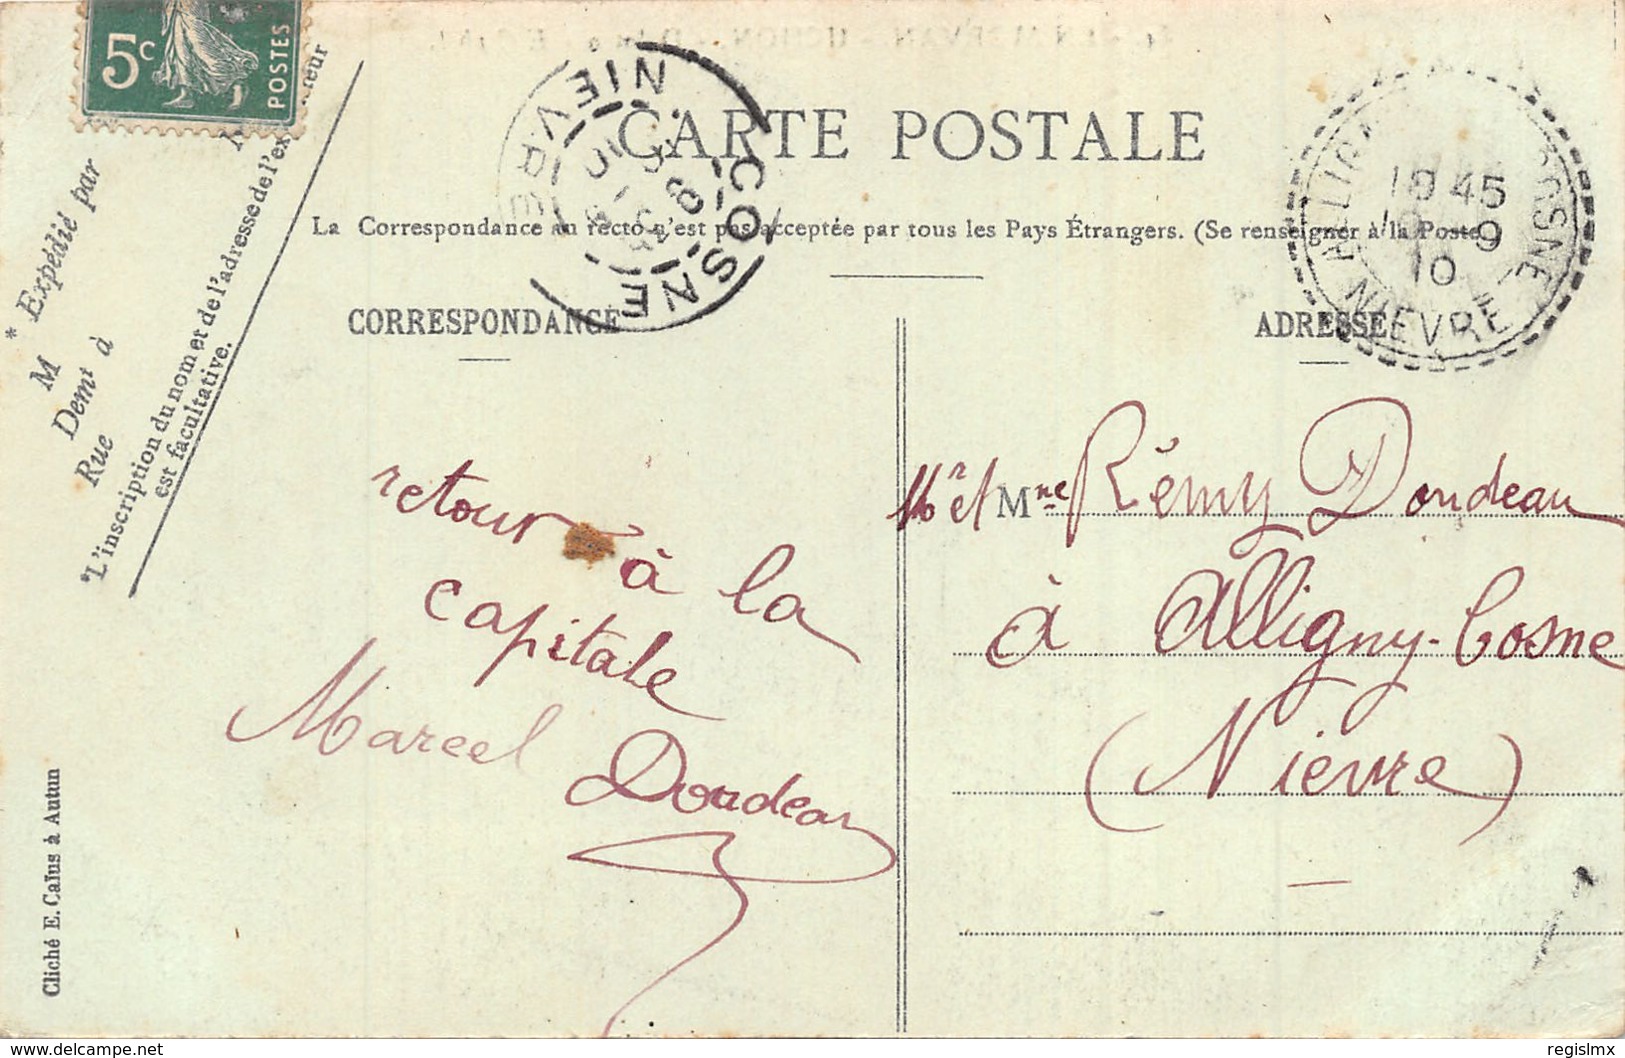 5c
POSTES
CARTE POSTALE
La Correspondance au recto n'est pas acceptée par tous les Pays Étrangers. (Se renseigner à la Poste)
COSNE
NIEVRE
18 45
9
10
NIEVRE
* Expédié par
M
Demt à
Rue
*L'inscription du nom et de l'adresse de l'expéditeur
est facultative.
CORRESPONDANCE
ADRESSE
retour à la
capitale
Marcel Dondeau
Mr et Mme Rémy Dondeau
à Alligny-Cosne
(Nièvre)
Cliché E. Calus à Autun
www.delcampe.net
regislmx